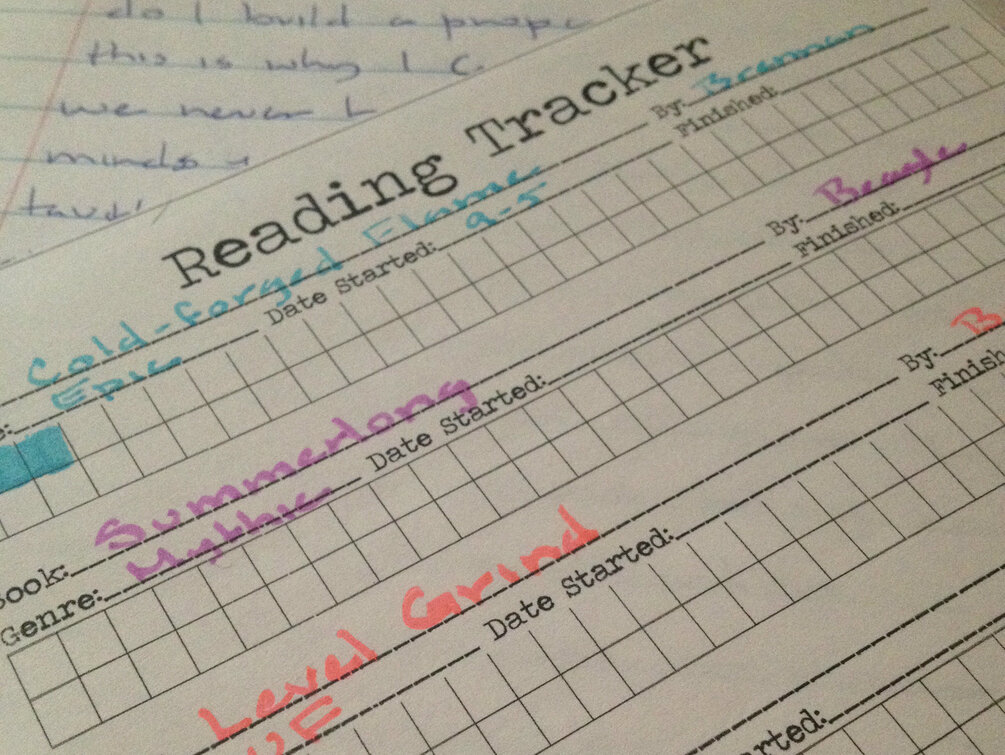 do I build a
this is why I
we never
minds
Reading Tracker
Cold-forged Flame By: Brennan
Epic Date Started: 9-5 Finished:
Book: Summerlong By: Beagle
Genre: Mythic Date Started: Finished:
Level Grind By: B
UF Date Started: Finish
rted: